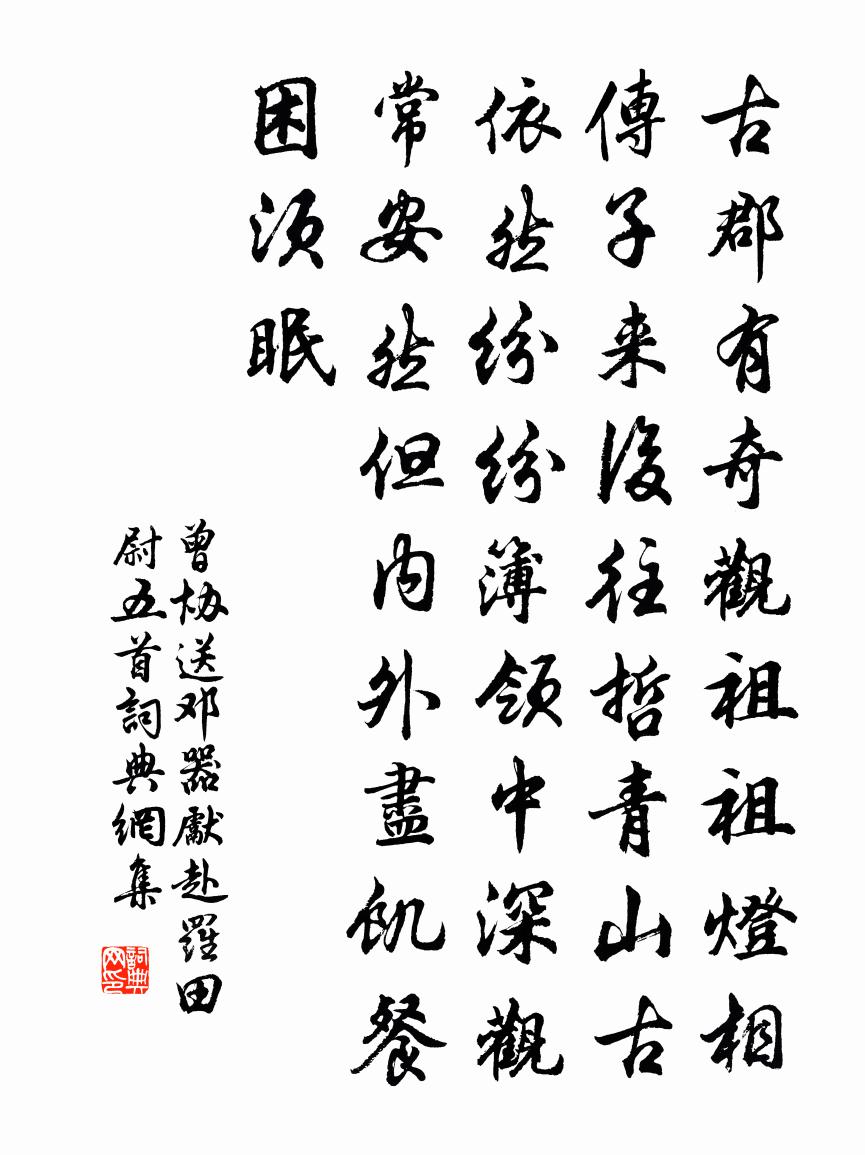 古郡有奇觀祖祖燈相
傳子来後往哲青山古
依然紛紛簿領中深觀
常安然但内外盡飢餐
困須眠
曾协送邓器獻赴羅田
尉五首詞典網集
詞典网印